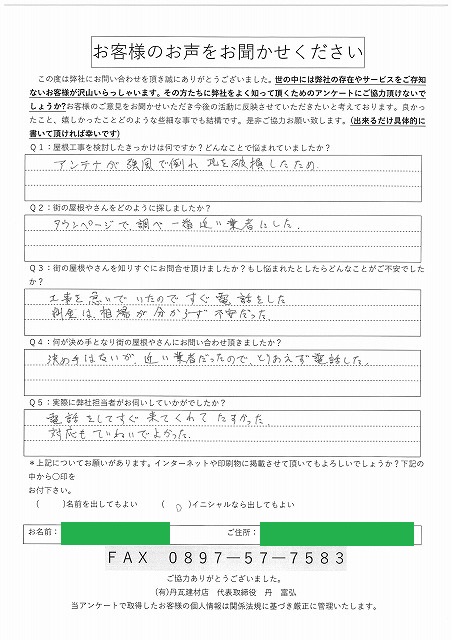 お客様のお声をお聞かせください
この度は弊社にお問い合わせを頂き誠にありがとうございました。世の中には弊社の存在やサービスをご存知
ないお客様が沢山いらっしゃいます。その方たちに弊社をよく知って頂くためのアンケートにご協力頂けないで
しょうか?お客様のご意見をお聞かせいただき今後の活動に反映させていただきたいと考えております。良かっ
たこと、嬉しかったことどのような些細な事でも結構です。是非ご協力お願い致します。(出来るだけ具体的に
書いて頂ければ幸いです)
Q1:屋根工事を検討したきっかけは何ですか?どんなことで悩まれていましたか?
アンテナが強風で倒れ瓦を破損したため
Q2:街の屋根やさんをどのように探しましたか?
タウンページで調べ一番近い業者にした.
Q3:街の屋根やさんを知りすぐにお問合せ頂けましたか?もし悩まれたとしたらどんなことがご不安でした
か?
工事を急いでいたのですぐ電話をした
料金は相場が分からず不安だった.
Q4:何が決め手となり街の屋根やさんにお問い合わせ頂きましたか?
決め手はないが、近い業者だったので、とりあえず電話した.
Q5:実際に弊社担当者がお伺いしていかがでしたか?
電話をしてすぐ来てくれてたすかった.
対応もていねいでよかった.
*上記についてお願いがあります。インターネットや印刷物に掲載させて頂いてもよろしいでしょうか?下記の
中から○印を
お付下さい。
( )名前を出してもよい ( ○ )イニシャルなら出してもよい
お名前: ご住所:
FAX 0897-57-7583
ご協力ありがとうございました。
(有)丹瓦建材店 代表取締役 丹 富弘
当アンケートで取得したお客様の個人情報は関係法規に基づき厳正に管理いたします。